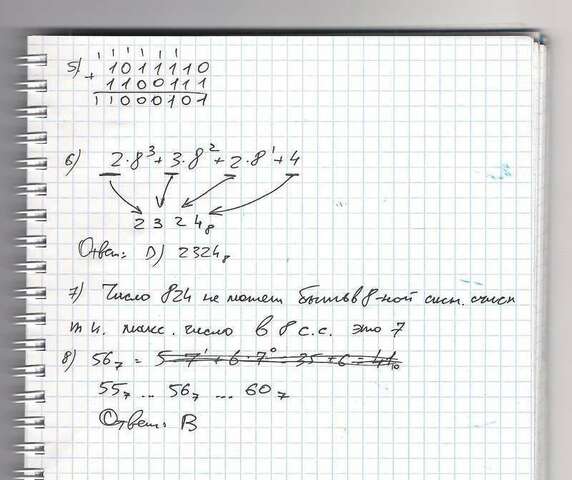 5) 1 1 1 1 1 1
+ 1011110
1100111
11000101
6) 2·8³ + 3·8² + 2·8¹ + 4
2 3 2 4₈
Ответ: D) 2324₈
7) Число 824 не может быть в 8-ной сист. счисл
т.к. макс. число в 8 с.с. это 7
8) 56₇ = 5·7¹ + 6·7⁰ = 35 + 6 = 41₁₀
55₇ ... 56₇ ... 60₇
Ответ: B